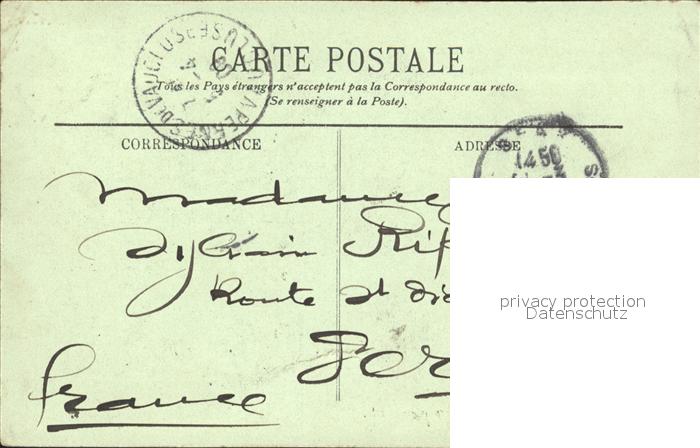 CARTE POSTALE
Tous les Pays étrangers n'acceptent pas la Correspondance au recto.
(Se renseigner à la Poste).
CORRESPONDANCE
ADRESSE
PERNES VAUCLUSE
1450
Madame
Sylvain Rip
Route St Di
France
privacy protection
Datenschutz